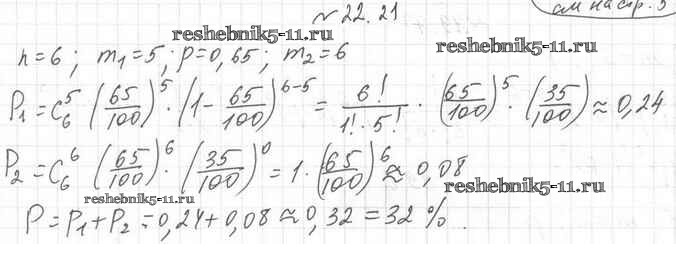 см на стр. 5
№ 22.21
reshebnik5-11.ru
n=6; m₁=5; p=0,65; m₂=6
reshebnik5-11.ru
P₁=C₆⁵ (65/100)⁵ · (1-65/100)⁶⁻⁵ = 6!/(1!·5!) · (65/100)⁵ · (35/100) ≈ 0,24
P₂=C₆⁶ (65/100)⁶ · (35/100)⁰ = 1·(65/100)⁶ ≈ 0,08
reshebnik5-11.ru
reshebnik5-11.ru
P=P₁+P₂=0,24+0,08≈0,32=32%.